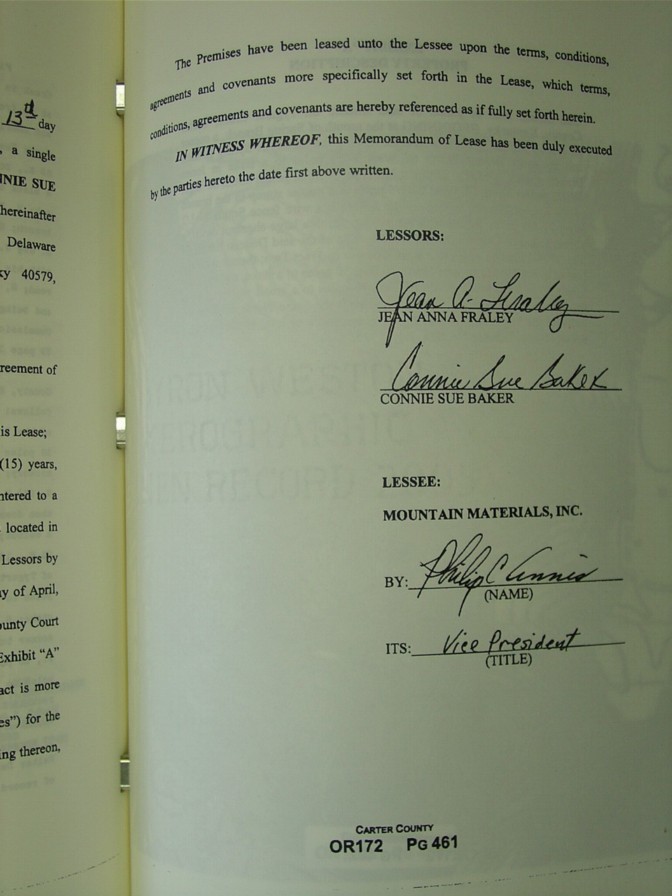 13th day
, a single
NNIE SUE
hereinafter
Delaware
ky 40579,
reement of
is Lease;
(15) years,
ntered to a
located in
Lessors by
ay of April,
ounty Court
Exhibit “A”
act is more
es”) for the
ing thereon,
The Premises have been leased unto the Lessee upon the terms, conditions,
agreements and covenants more specifically set forth in the Lease, which terms,
conditions, agreements and covenants are hereby referenced as if fully set forth herein.
IN WITNESS WHEREOF, this Memorandum of Lease has been duly executed
by the parties hereto the date first above written.
LESSORS:
Jean A. Fraley
JEAN ANNA FRALEY
Connie Sue Baker
CONNIE SUE BAKER
LESSEE:
MOUNTAIN MATERIALS, INC.
BY: Philip C
(NAME)
ITS: Vice President
(TITLE)
CARTER COUNTY
OR172 PG 461